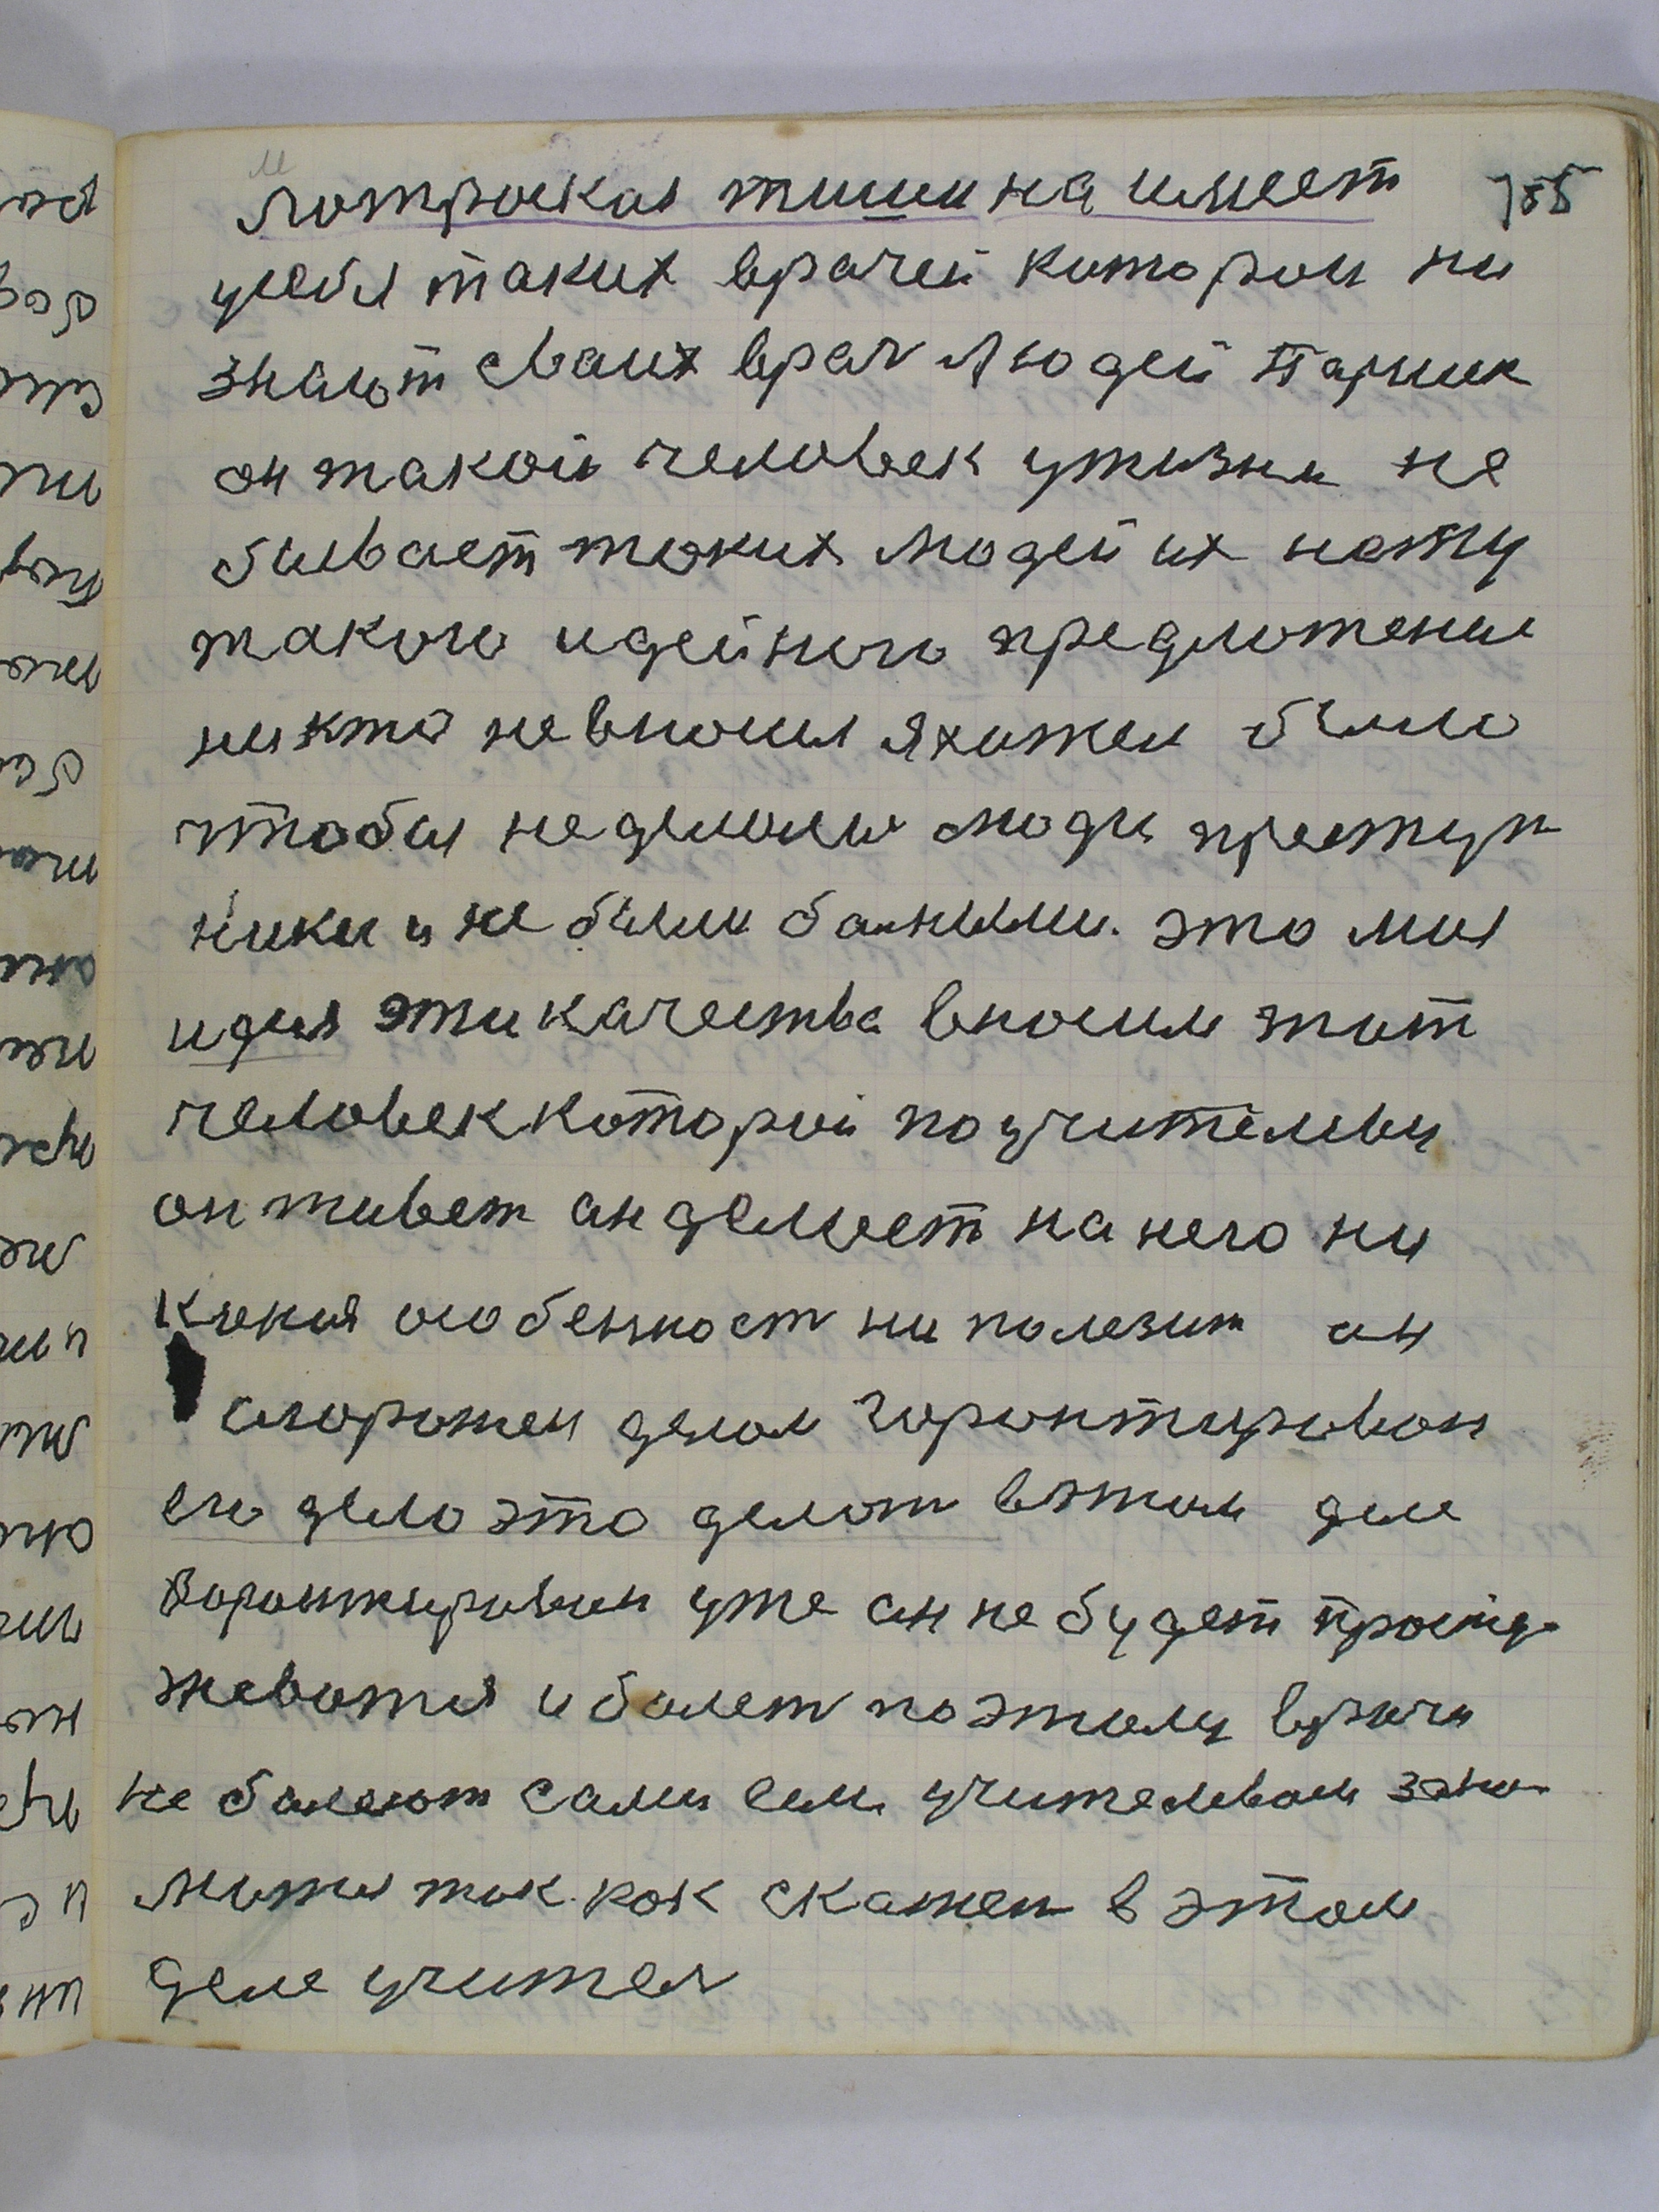 Мотроская тишина имеет 155
усебя таких врачей которои ни
знают сваих врач людей паршек
он такой человек ужизни не
бывает таких людей их нету
такого идейного предложение
никто невносил яхотел было
чтобы неделоли люди преступ
ники и не были больными. это моя
идея эти качества вносит тот
человек которой по учителеву
он живет он делоет на него ни
кокия особенност ни полезит он
огорожен делом горонтировон
его дело это делот в этом деле
горонтировон уже он не будет просту
животся и болет поэтому врачи
не болеют сами если учителевом зони
мотся ток кок скажет в этом
деле учител